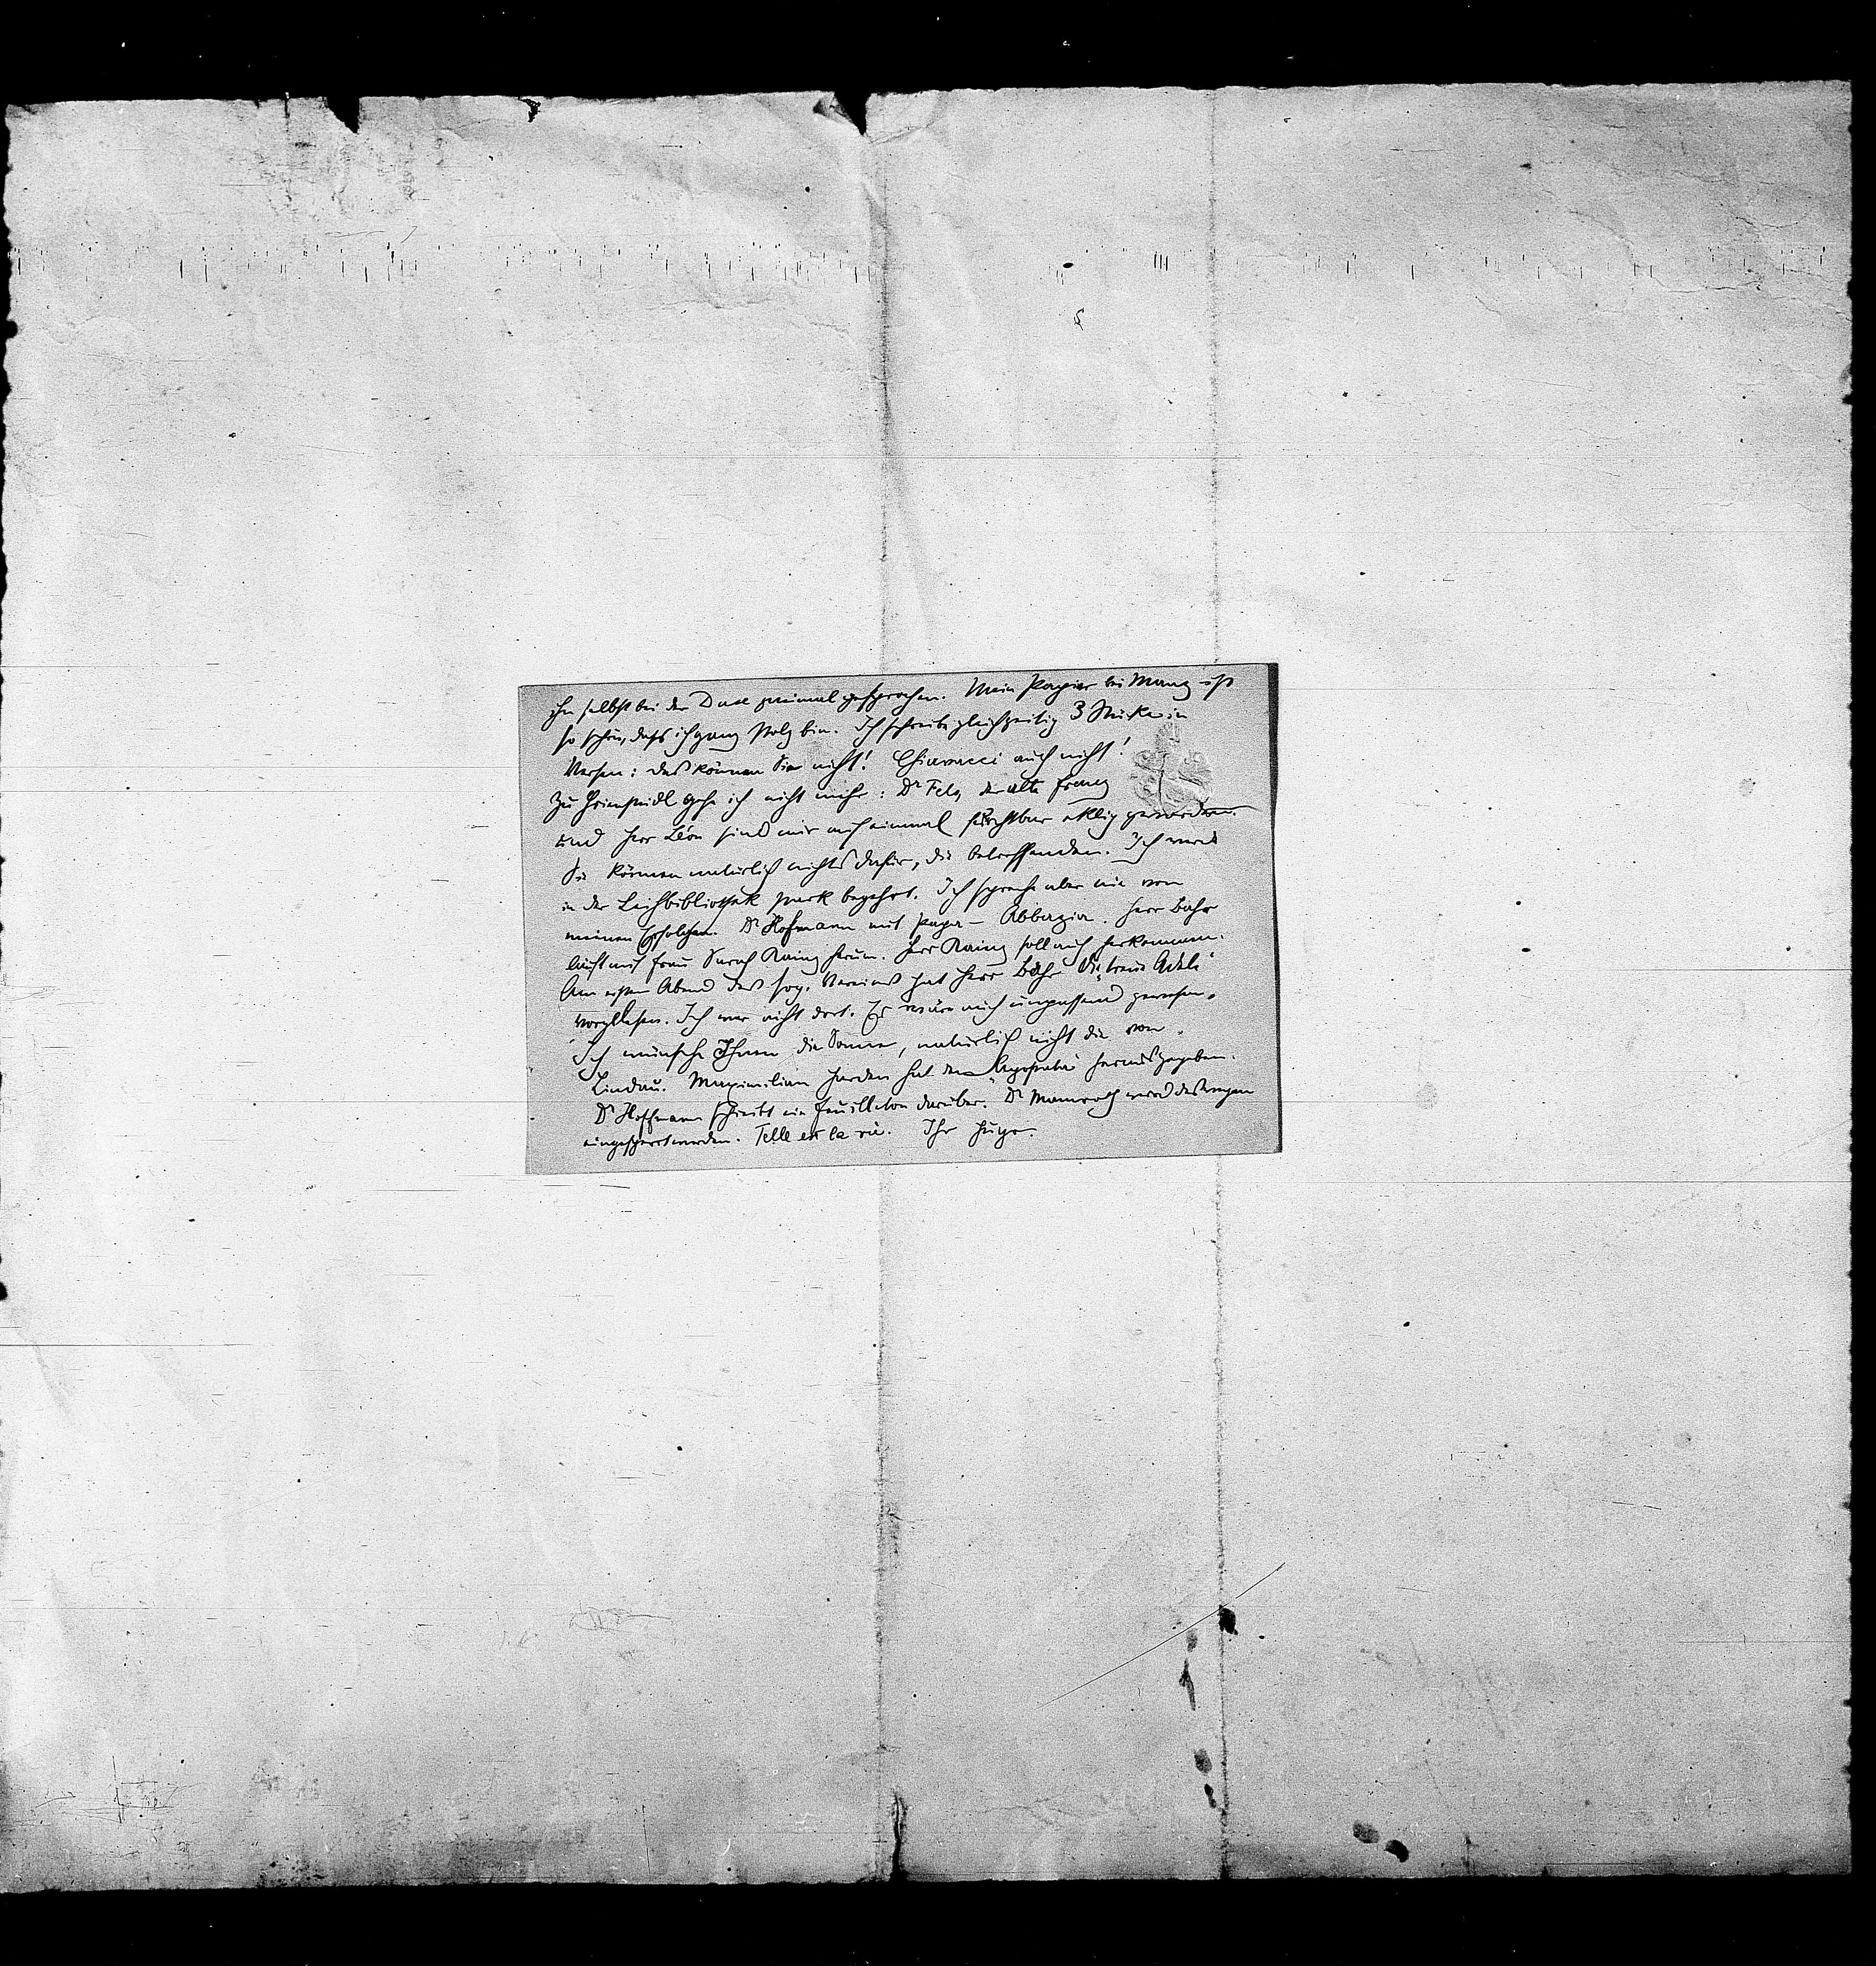 ihn selbst bei der Duse zweimal gesprochen. Mein Papier bei Manz ist
so schön, dass ich ganz stolz bin. Ich schreibe gleichzeitig 3 Stücke in
Versen: das können Sie nicht! Chiavacci auch nicht!
Zu Griensteidl gehe ich nicht mehr: Dr Fels, der alte Franz
und Herr Léon sind mir auf einmal furchtbar eklig geworden.
Sie können natürlich nichts dafür, die betreffenden. Ich werde
in der Leihbibliothek stark begehrt. Ich spreche aber nie von
meinen Erfolgen. Dr Hofmann mit Papa – Abbazia. Herr Bahr
läuft mit Frau Sarah Kainz herum. Herr Kainz soll auch herkommen.
Am ersten Abend des sog. Vereins hat Herr Bahr „Die treue Adele“
vorgelesen. Ich war nicht dort. Es wäre auch unpassend gewesen.
Ich wünsche Ihnen die Sonne, natürlich nicht die von
Lindau. Maximilian Harden hat den „Apostata“ herausgegeben.
Dr Hoffmann schreibt ein Feuilleton darüber. Dr Mamroth wird deswegen
eingesperrt werden. Telle est la vie. Ihr Hugo.